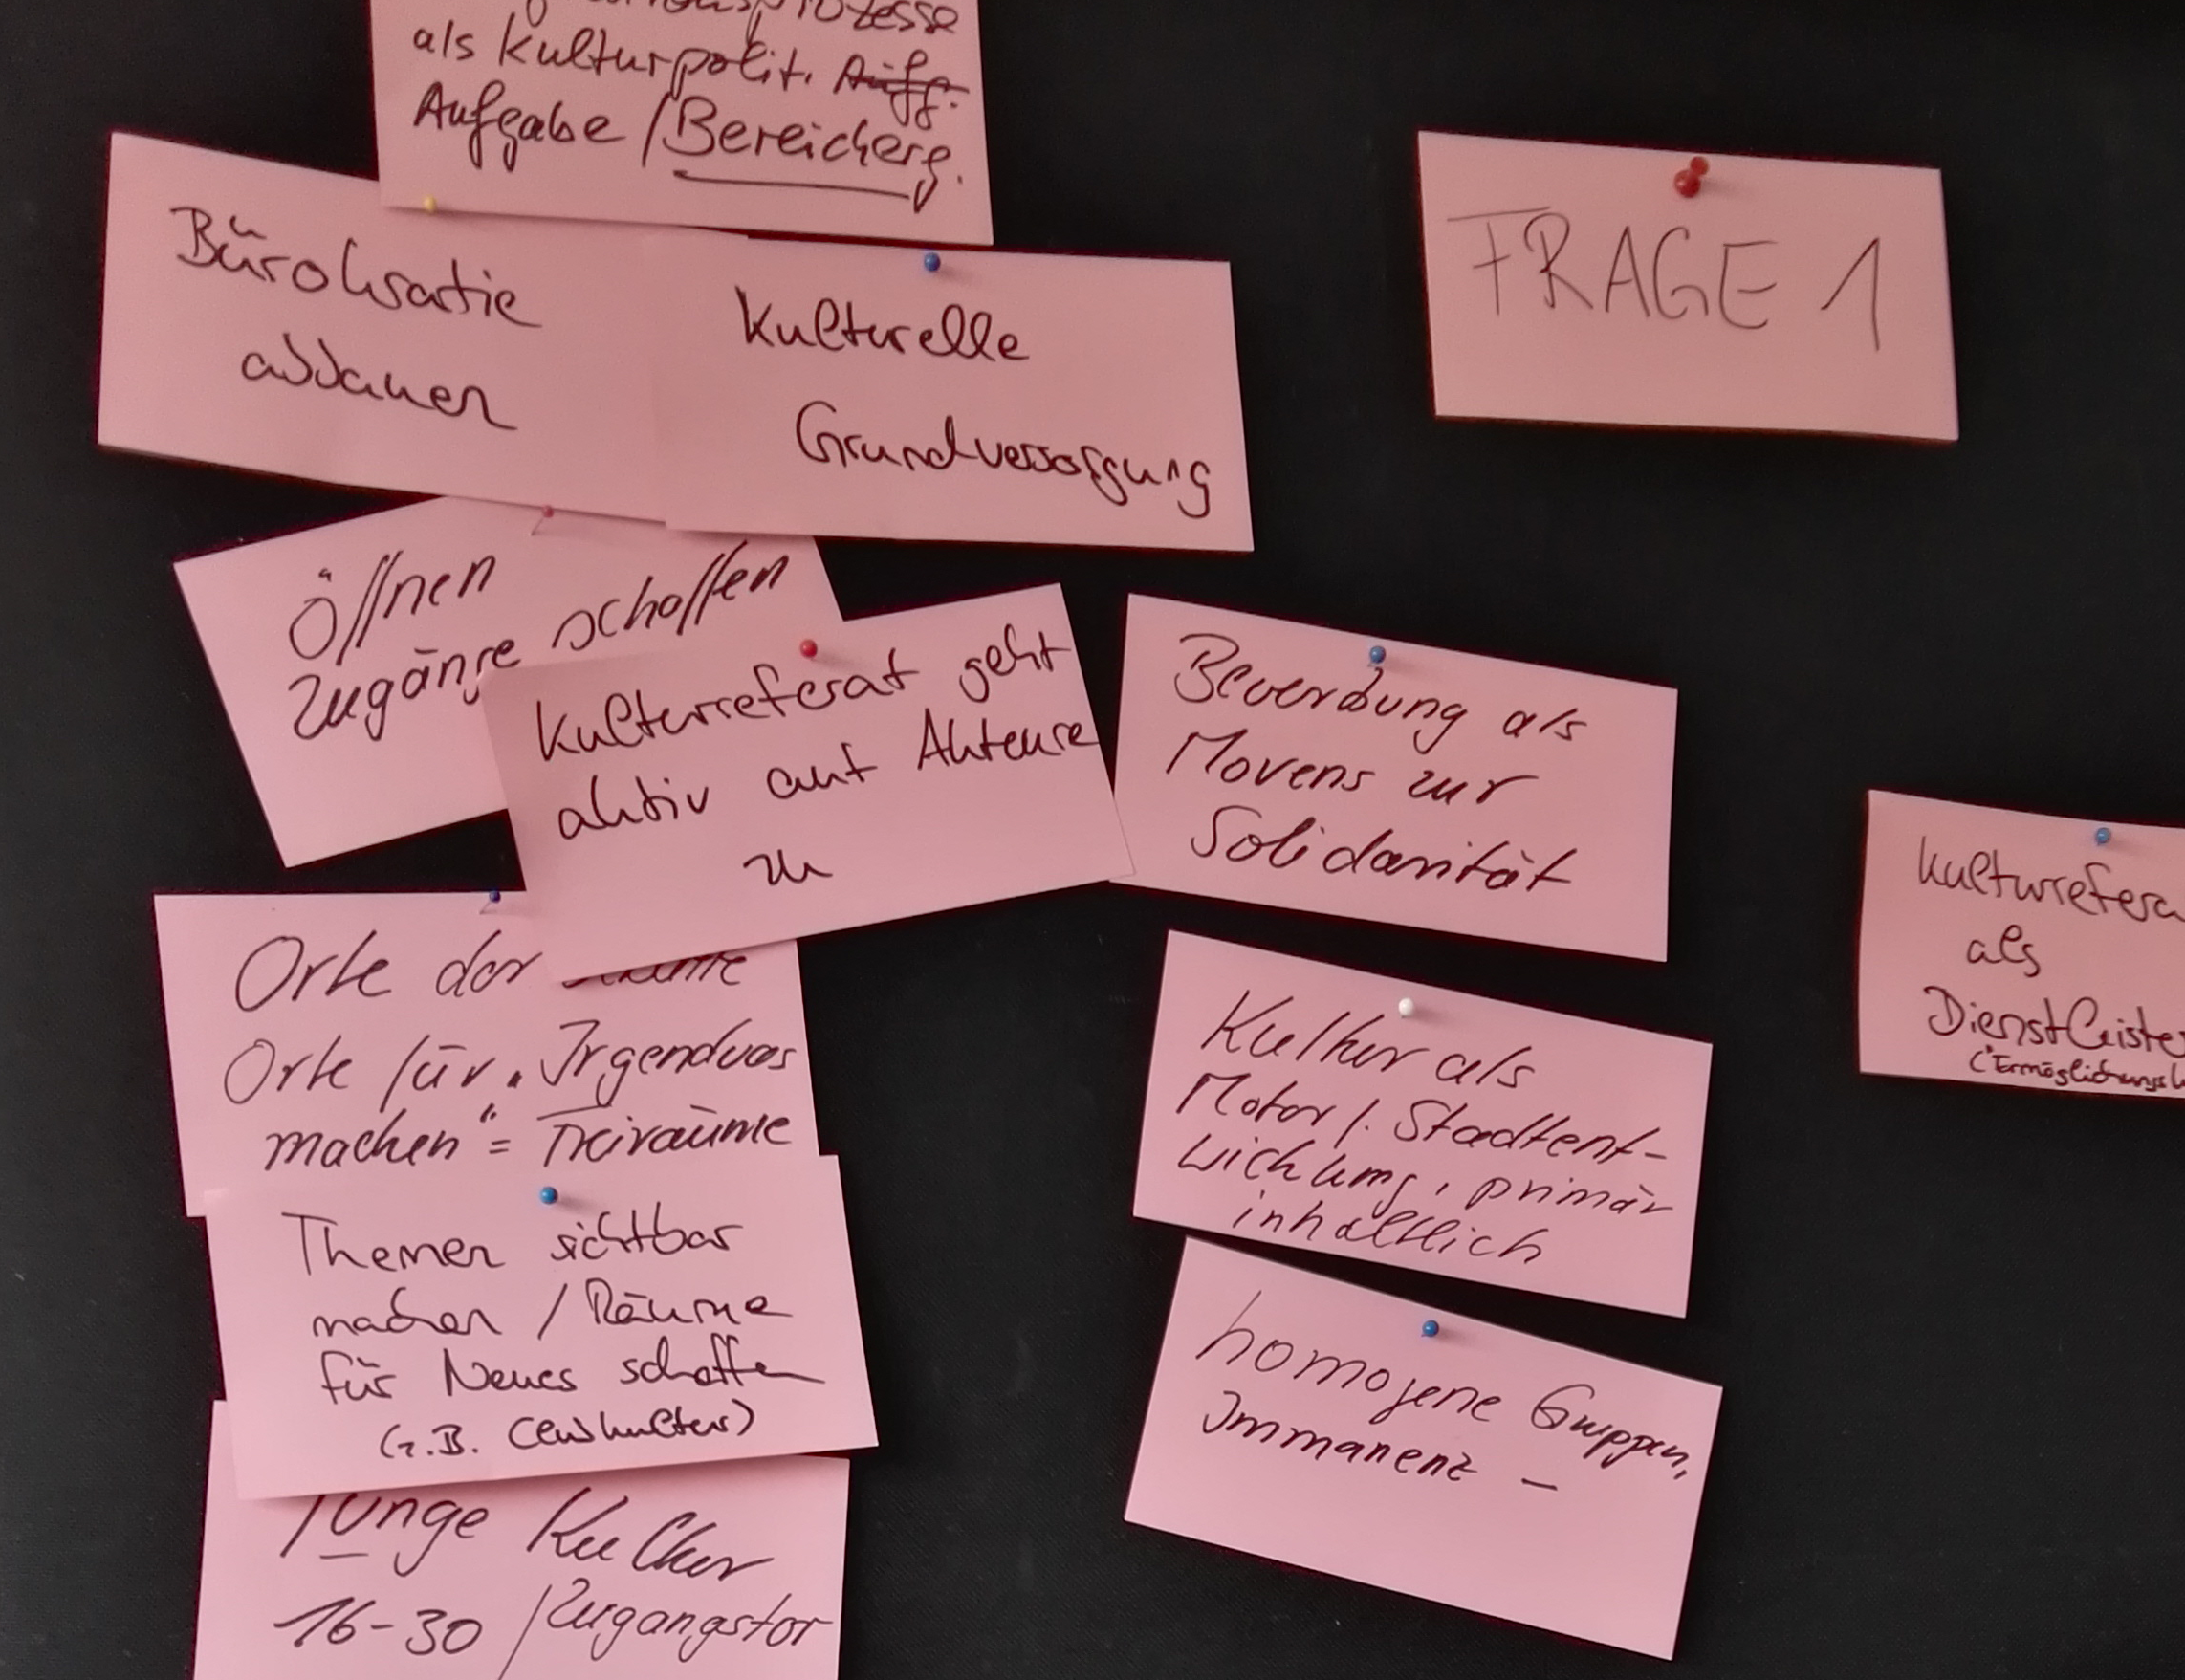 als kulturpolit. Auff.
Aufgabe / Bereicherg.
Bürokratie
abbauen
Kulturelle
Grundversorgung
FRAGE 1
Öffnen
Zugänge schaffen
Kulturreferat geht
aktiv auf Akteure
zu
Bewerbung als
Movens zur
Solidarität
Kulturrefera
als
Dienstleiste
Orte der
Orte für "Irgendwas
machen" = Freiräume
Kultur als
Motor f. Stadtent-
wicklung, primär
inhaltlich
Themen sichtbar
machen / Räume
für Neues schaffen
(z.B. Clubkultur)
homogene Gruppen,
Immanenz –
Junge Kultur
16-30 / Zugangstor